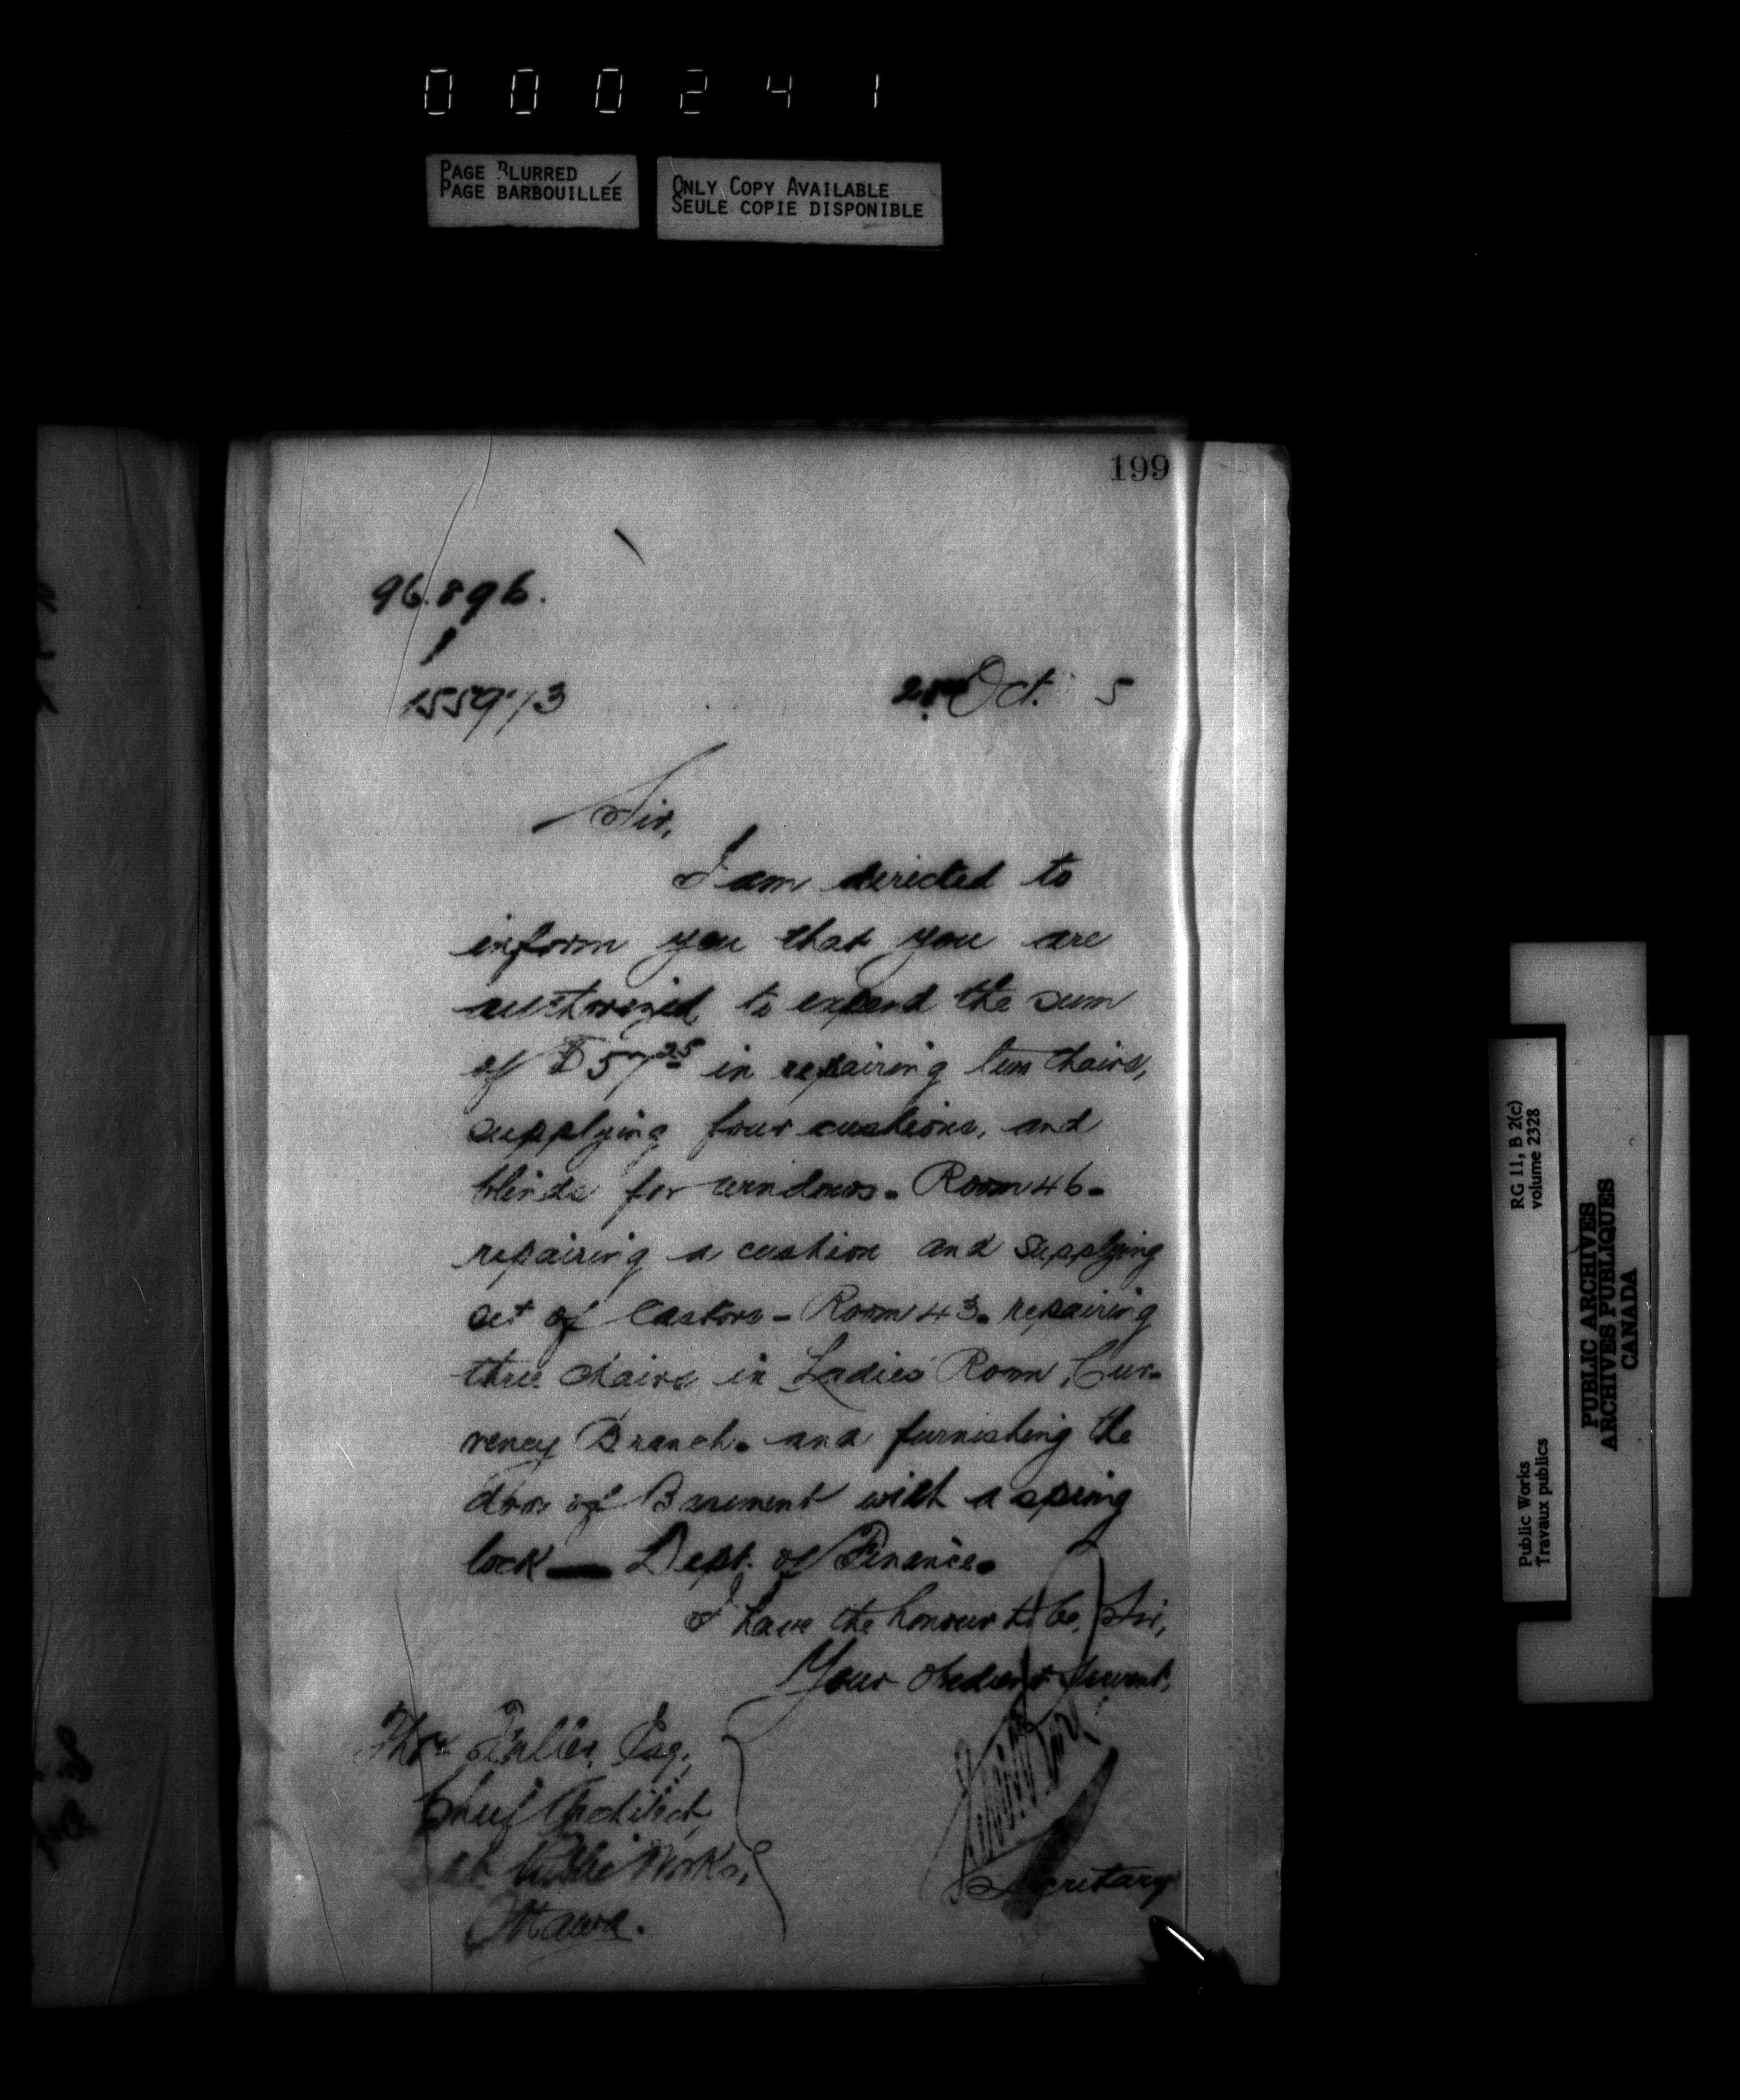 000241
PAGE BLURRED
PAGE BARBOUILLÉE
ONLY COPY AVAILABLE
SEULE COPIE DISPONIBLE
199
96.896.
1
Oct. 5
Sir,
I am directed to
inform you that you are
authorized to expend the sum
of $57.25 in repairing two chairs,
supplying four cushions, and
blinds for windows. Room 46.
repairing a cushion and supplying
set of Castors - Room 43. repairing
three chairs in Ladies' Room, Cur-
rency Branch. and furnishing the
door of Basement with a spring
lock — Dept. of Finance.
I have the honour to be, Sir,
Your obedient Servant,
Secretary
Thos. Fuller, Esq.,
Chief Architect,
Public Works,
Ottawa.
RG 11, B 2(c)
volume 2328
Public Works
Travaux publics
PUBLIC ARCHIVES
ARCHIVES PUBLIQUES
CANADA